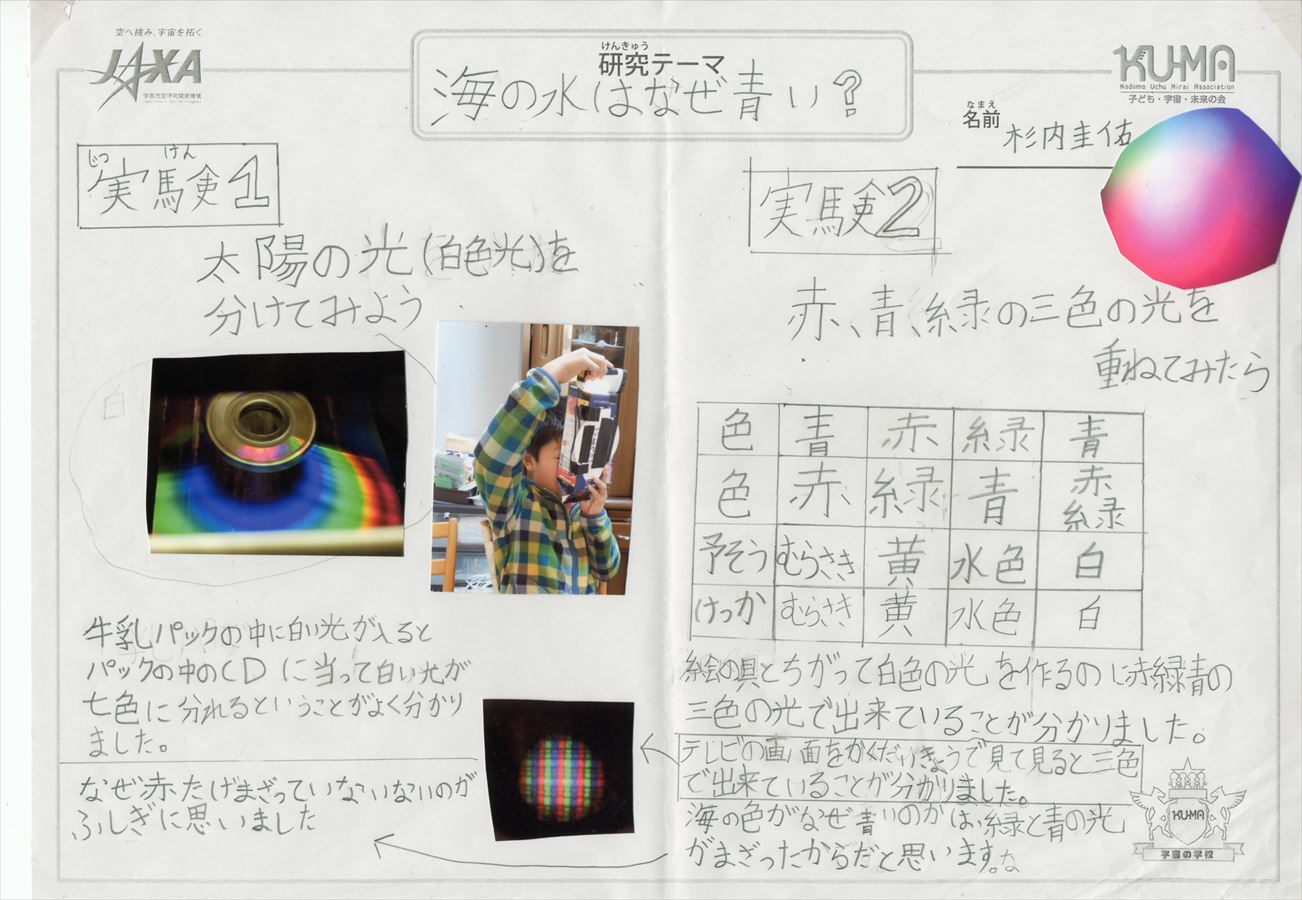 空へ挑み、宇宙を拓く
JAXA
宇宙航空研究開発機構
けんきゅう
研究テーマ
海の水はなぜ青い？
KU-MA
Kodomo Uchu Mirai Association
子ども・宇宙・未来の会
なまえ
名前
杉内圭佑
じっ けん
実験1
太陽の光(白色光)を
分けてみよう
白
牛乳パックの中に白い光が入ると
パックの中のCDに当って白い光が
七色に分れるということがよく分かり
ました。
なぜ赤たけまざっていないないのが
ふしぎに思いました
実験2
赤、青、緑の三色の光を
重ねてみたら
色 青 赤 緑 青
色 赤 緑 青 赤緑
予そう むらさき 黄 水色 白
けっか むらさき 黄 水色 白
絵の具とちがって白色の光を作るのに赤緑青の
三色の光で出来ていることが分かりました。
テレビの画面をかくだいきょうで見て見ると三色
で出来ていることが分かりました。
海の色がなぜ青いのかは、緑と青の光
がまざったからだと思います。な
KU-MA
宇宙の学校